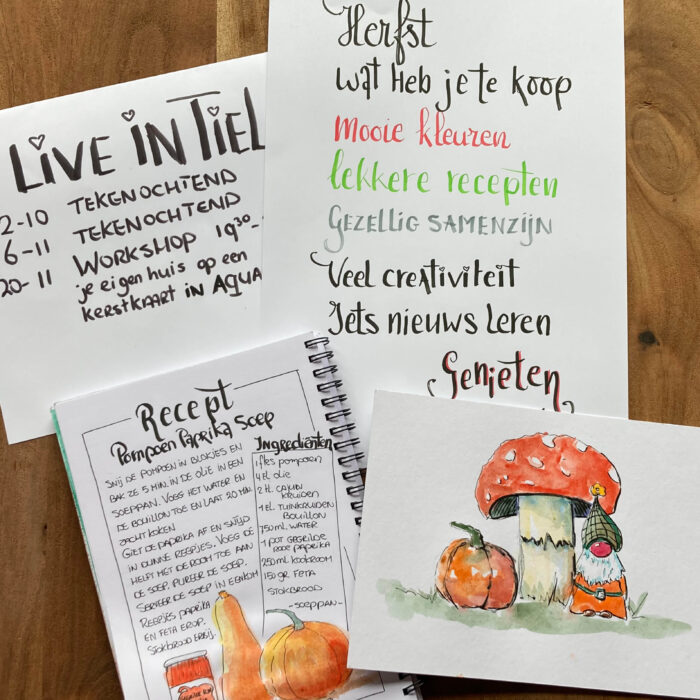 LIVE IN TIEL
2-10 TEKENOCHTEND
6-11 TEKENOCHTEND
20-11 WORKSHOP 1930-
je eigen huis op een
kerstkaart IN AQUA
Herfst
wat heb je te koop
Mooie kleuren
lekkere recepten
GEZELLIG SAMENZIJN
Veel creativiteit
Iets nieuws leren
Genieten
Recept
Pompoen Paprika Soep
SNIJ DE POMPOEN IN BLOKJES EN
BAK ZE 5 MIN. IN DE OLIE IN EEN
SOEPPAN. VOEG HET WATER EN
DE BOUILLON TOE EN LAAT 20 MIN.
ZACHT KOKEN
GIET DE PAPRIKA AF EN SNIJD
IN DUNNE REEPJES. VOEG DE
HELFT MET DE ROOM TOE AAN
DE SOEP. PUREER DE SOEP.
SERVEER DE SOEP IN EEN KOM
REEPJES PAPRIKA
EN FETA EROP.
STOKBROOD ERBIJ.
Ingrediënten
1 fles pompoen
4 el OLIE
2 tl. CAJUN
KRUIDEN
4 el. TUINKRUIDEN
BOUILLON
750 ml. WATER
1 POT GEGRILDE
RODE PAPRIKA
250 ml KOOKROOM
150 gr. FETA
STOKBROOD
-SOEPPAN-